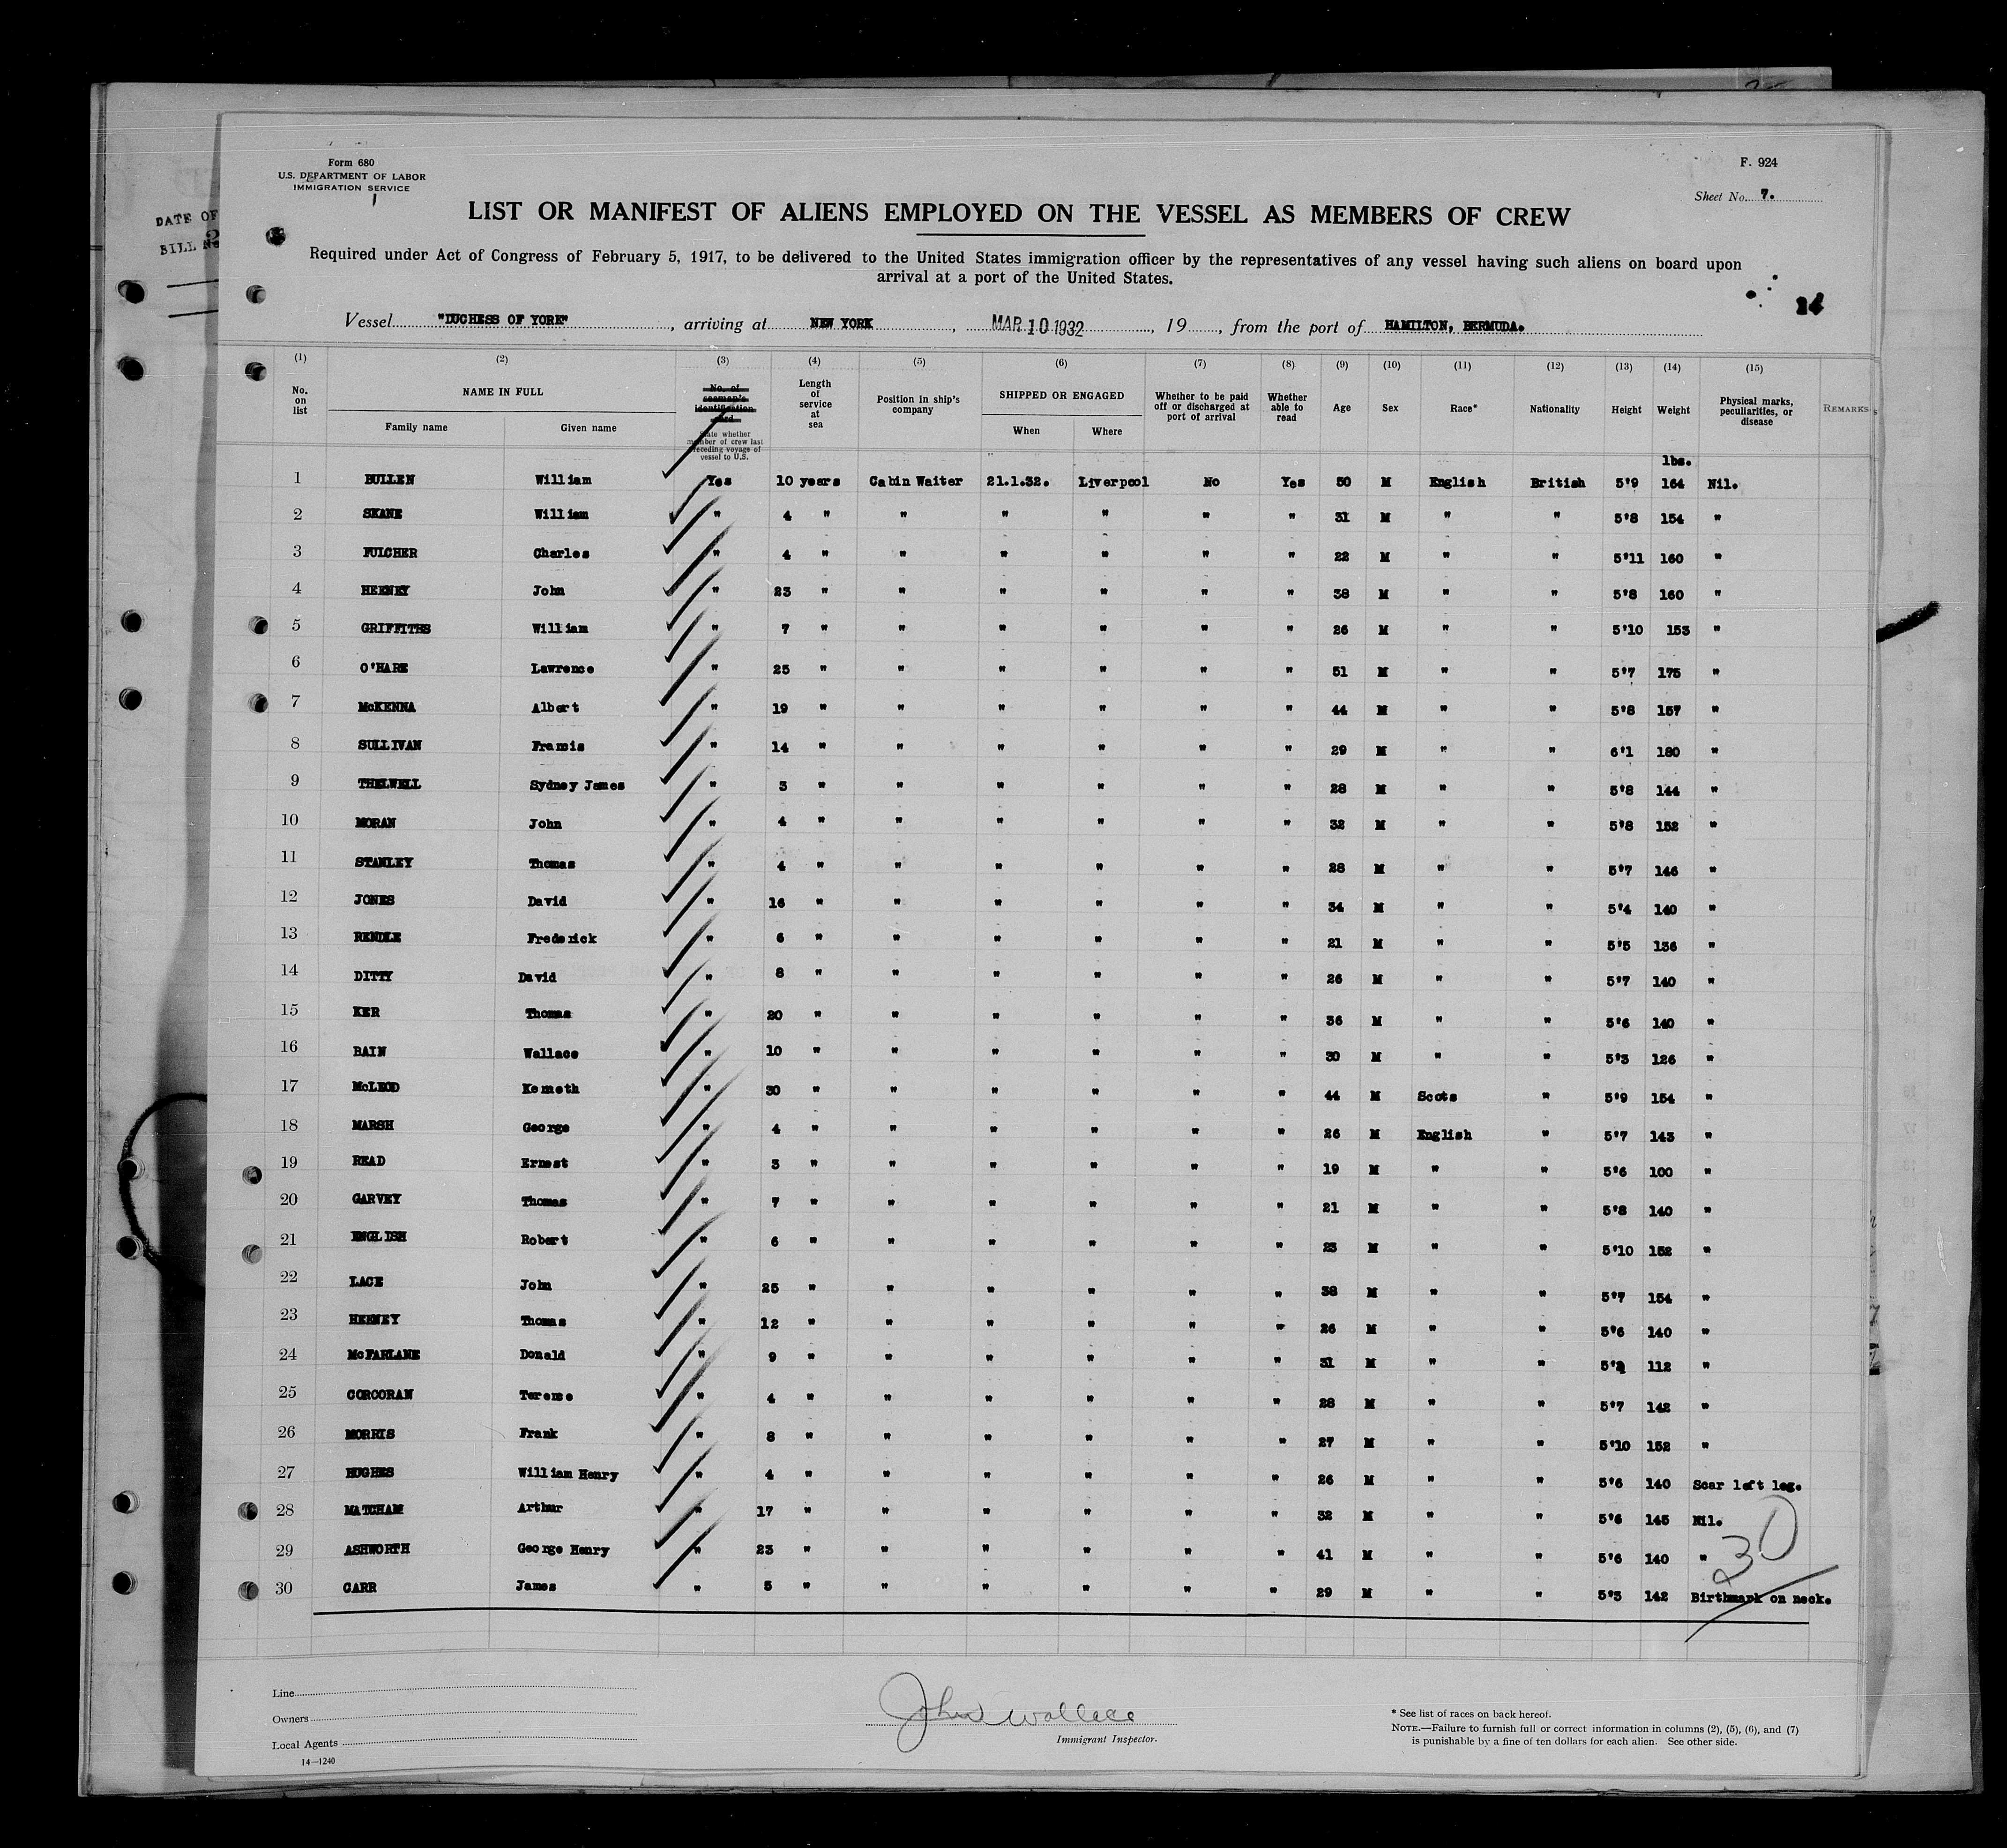 Form 680
U.S. DEPARTMENT OF LABOR
IMMIGRATION SERVICE
F. 924
Sheet No. 7.
DATE OF
BILL
LIST OR MANIFEST OF ALIENS EMPLOYED ON THE VESSEL AS MEMBERS OF CREW
Required under Act of Congress of February 5, 1917, to be delivered to the United States immigration officer by the representatives of any vessel having such aliens on board upon
arrival at a port of the United States.
Vessel "DUCHESS OF YORK", arriving at NEW YORK, MAR 10 1932, 19, from the port of HAMILTON, BERMUDA.
(1) (2) (3) (4) (5) (6) (7) (8) (9) (10) (11) (12) (13) (14) (15)
No. on list NAME IN FULL Family name Given name No. of seaman's identification card State whether member of crew last preceding voyage of vessel to U.S. Length of service at sea Position in ship's company SHIPPED OR ENGAGED When Where Whether to be paid off or discharged at port of arrival Whether able to read Age Sex Race* Nationality Height Weight Physical marks, peculiarities, or disease REMARKS
lbs.
1 BULLEN William Yes 10 years Cabin Waiter 21.1.32. Liverpool No Yes 50 M English British 5'9 164 Nil.
2 SKANE William " 4 " " " " " " 31 M " " 5'8 154 "
3 FULCHER Charles " 4 " " " " " " 22 M " " 5'11 160 "
4 HEENEY John " 23 " " " " " " 38 M " " 5'8 160 "
5 GRIFFITHS William " 7 " " " " " " 26 M " " 5'10 153 "
6 O'HARE Lawrence " 25 " " " " " " 51 M " " 5'7 175 "
7 McKENNA Albert " 19 " " " " " " 44 M " " 5'8 157 "
8 SULLIVAN Francis " 14 " " " " " " 29 M " " 6'1 180 "
9 THELWELL Sydney James " 3 " " " " " " 28 M " " 5'8 144 "
10 MORAN John " 4 " " " " " " 32 M " " 5'8 152 "
11 STANLEY Thomas " 4 " " " " " " 28 M " " 5'7 146 "
12 JONES David " 16 " " " " " " 34 M " " 5'4 140 "
13 RENDLE Frederick " 6 " " " " " " 21 M " " 5'5 136 "
14 DITTY David " 8 " " " " " " 26 M " " 5'7 140 "
15 KER Thomas " 20 " " " " " " 36 M " " 5'6 140 "
16 BAIN Wallace " 10 " " " " " " 30 M " " 5'3 126 "
17 McLEOD Kenneth " 30 " " " " " " 44 M Scots " 5'9 154 "
18 MARSH George " 4 " " " " " " 26 M English " 5'7 143 "
19 READ Ernest " 3 " " " " " " 19 M " " 5'6 100 "
20 GARVEY Thomas " 7 " " " " " " 21 M " " 5'8 140 "
21 ENGLISH Robert " 6 " " " " " " 23 M " " 5'10 152 "
22 LACE John " 25 " " " " " " 38 M " " 5'7 154 "
23 HEENEY Thomas " 12 " " " " " " 26 M " " 5'6 140 "
24 McFARLANE Donald " 9 " " " " " " 31 M " " 5'2 112 "
25 CORCORAN Terence " 4 " " " " " " 28 M " " 5'7 142 "
26 MORRIS Frank " 8 " " " " " " 27 M " " 5'10 152 "
27 HUGHES William Henry " 4 " " " " " " 26 M " " 5'6 140 Scar left leg.
28 MATCHAM Arthur " 17 " " " " " " 32 M " " 5'6 145 Nil.
29 ASHWORTH George Henry " 23 " " " " " " 41 M " " 5'6 140 "
30 CARR James " 5 " " " " " " 29 M " " 5'3 142 Birthmark on neck.
30
Line
Owners
Local Agents
14—1240
John Wallace
Immigrant Inspector.
* See list of races on back hereof.
NOTE.—Failure to furnish full or correct information in columns (2), (5), (6), and (7)
is punishable by a fine of ten dollars for each alien. See other side.